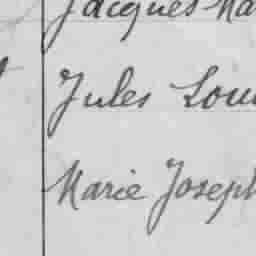 Jacques Ma
Jules Lou
Marie Joseph